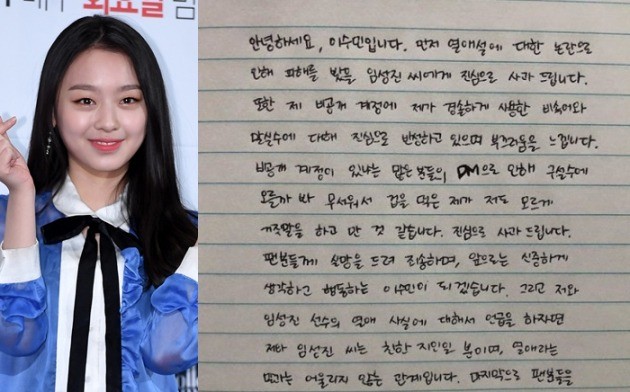 화요일 밤
안녕하세요, 이수민입니다. 먼저 열애설에 대한 논란으로
인해 피해를 받았을 임성진 씨에게 진심으로 사과 드립니다.
또한 제 비공개 계정에 제가 경솔하게 사용한 비속어와
말실수에 대해 진심으로 반성하고 있으며 부끄러움을 느낍니다.
비공개 계정이 있냐는 많은 분들의 DM으로 인해 구설수에
오를까 봐 무서워서 겁을 먹은 제가 저도 모르게
거짓말을 하고 만 것 같습니다. 진심으로 사과 드립니다.
팬분들께 실망을 드려 죄송하며, 앞으로는 신중하게
생각하고 행동하는 이수민이 되겠습니다. 그리고 저와
임성진 선수의 열애 사실에 대해서 언급을 하자면
저와 임성진 씨는 친한 지인일 뿐이며, 열애라는
과는 어울리지 않는 관계입니다. 마지막으로 팬분들을